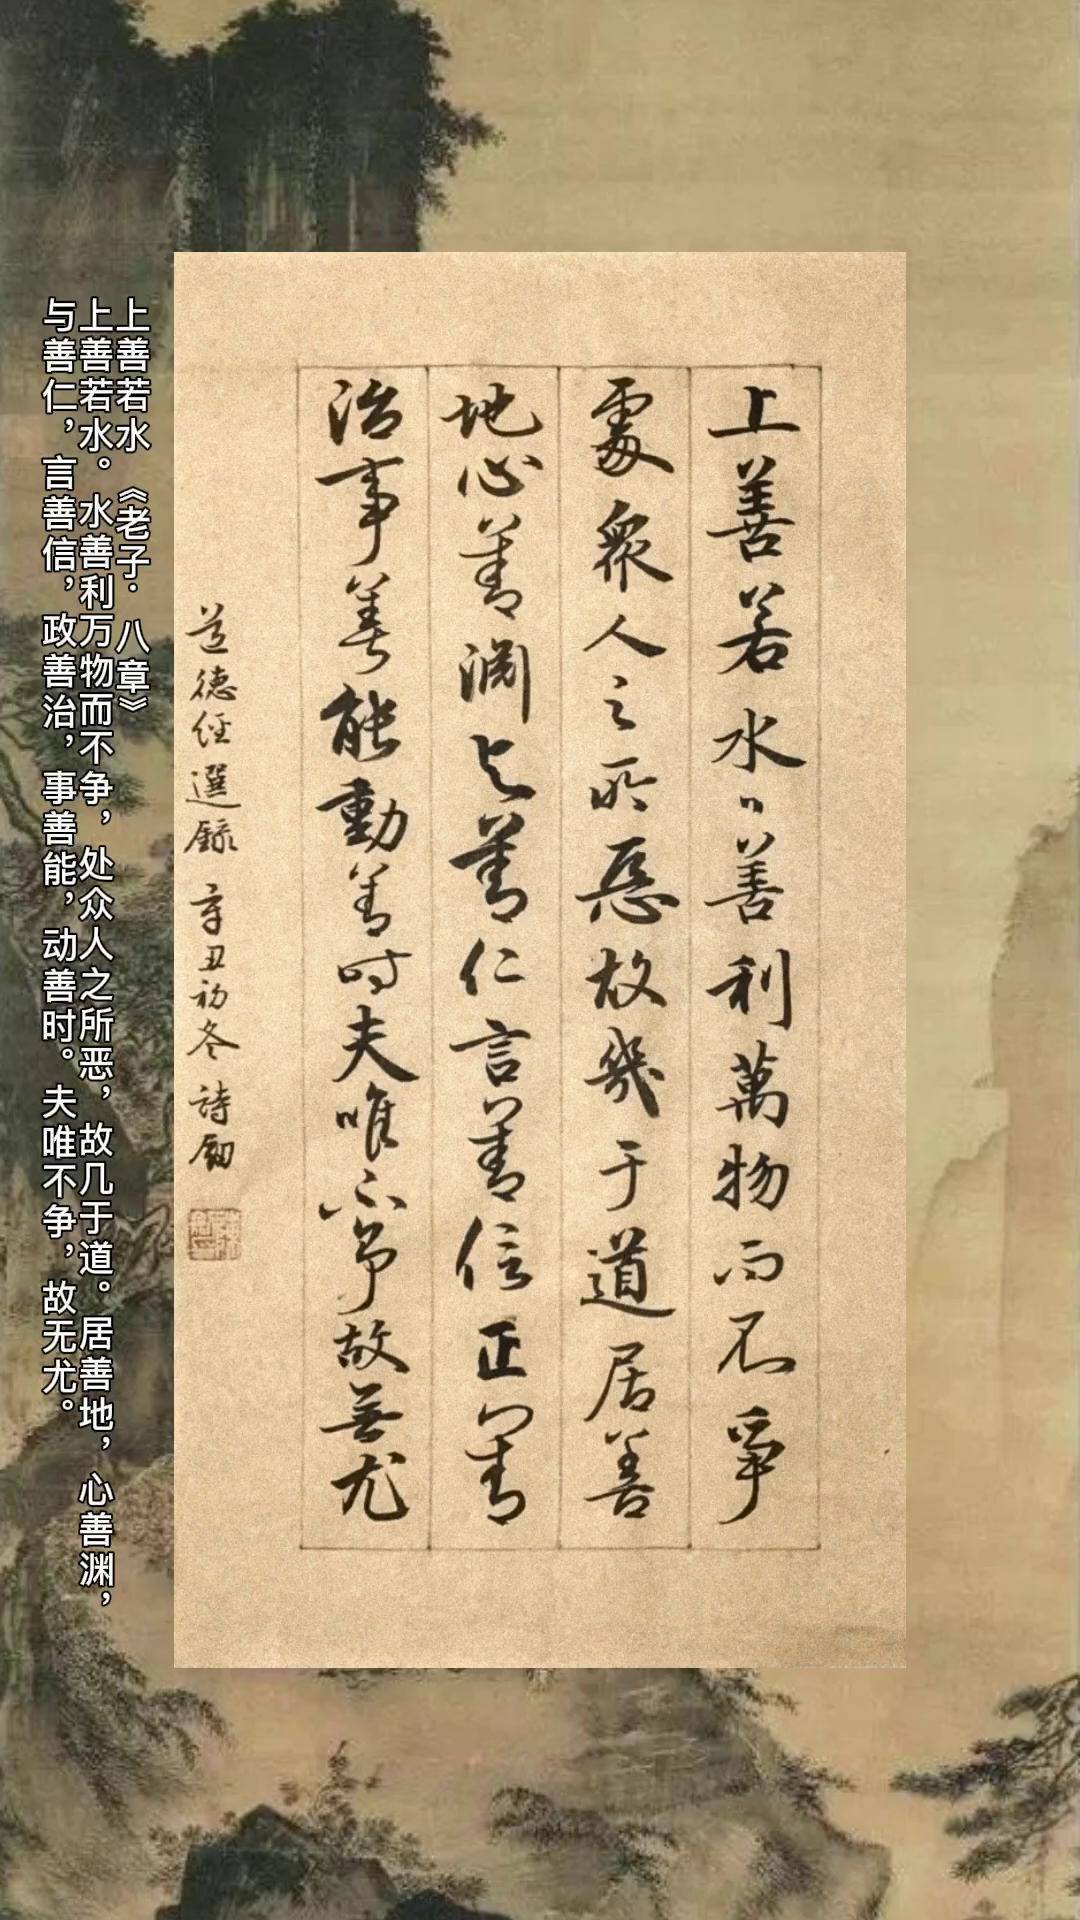 上善若水〻善利萬物而不爭
處衆人之所惡故幾于道居善
地心善淵与善仁言善信正善
治事善能動善时夫唯不争故無尤
道德經選録 辛丑初冬 詩劒
上善若水《老子·八章》
上善若水。水善利万物而不争，处众人之所恶，故几于道。居善地，心善渊，
与善仁，言善信，政善治，事善能，动善时。夫唯不争，故无尤。